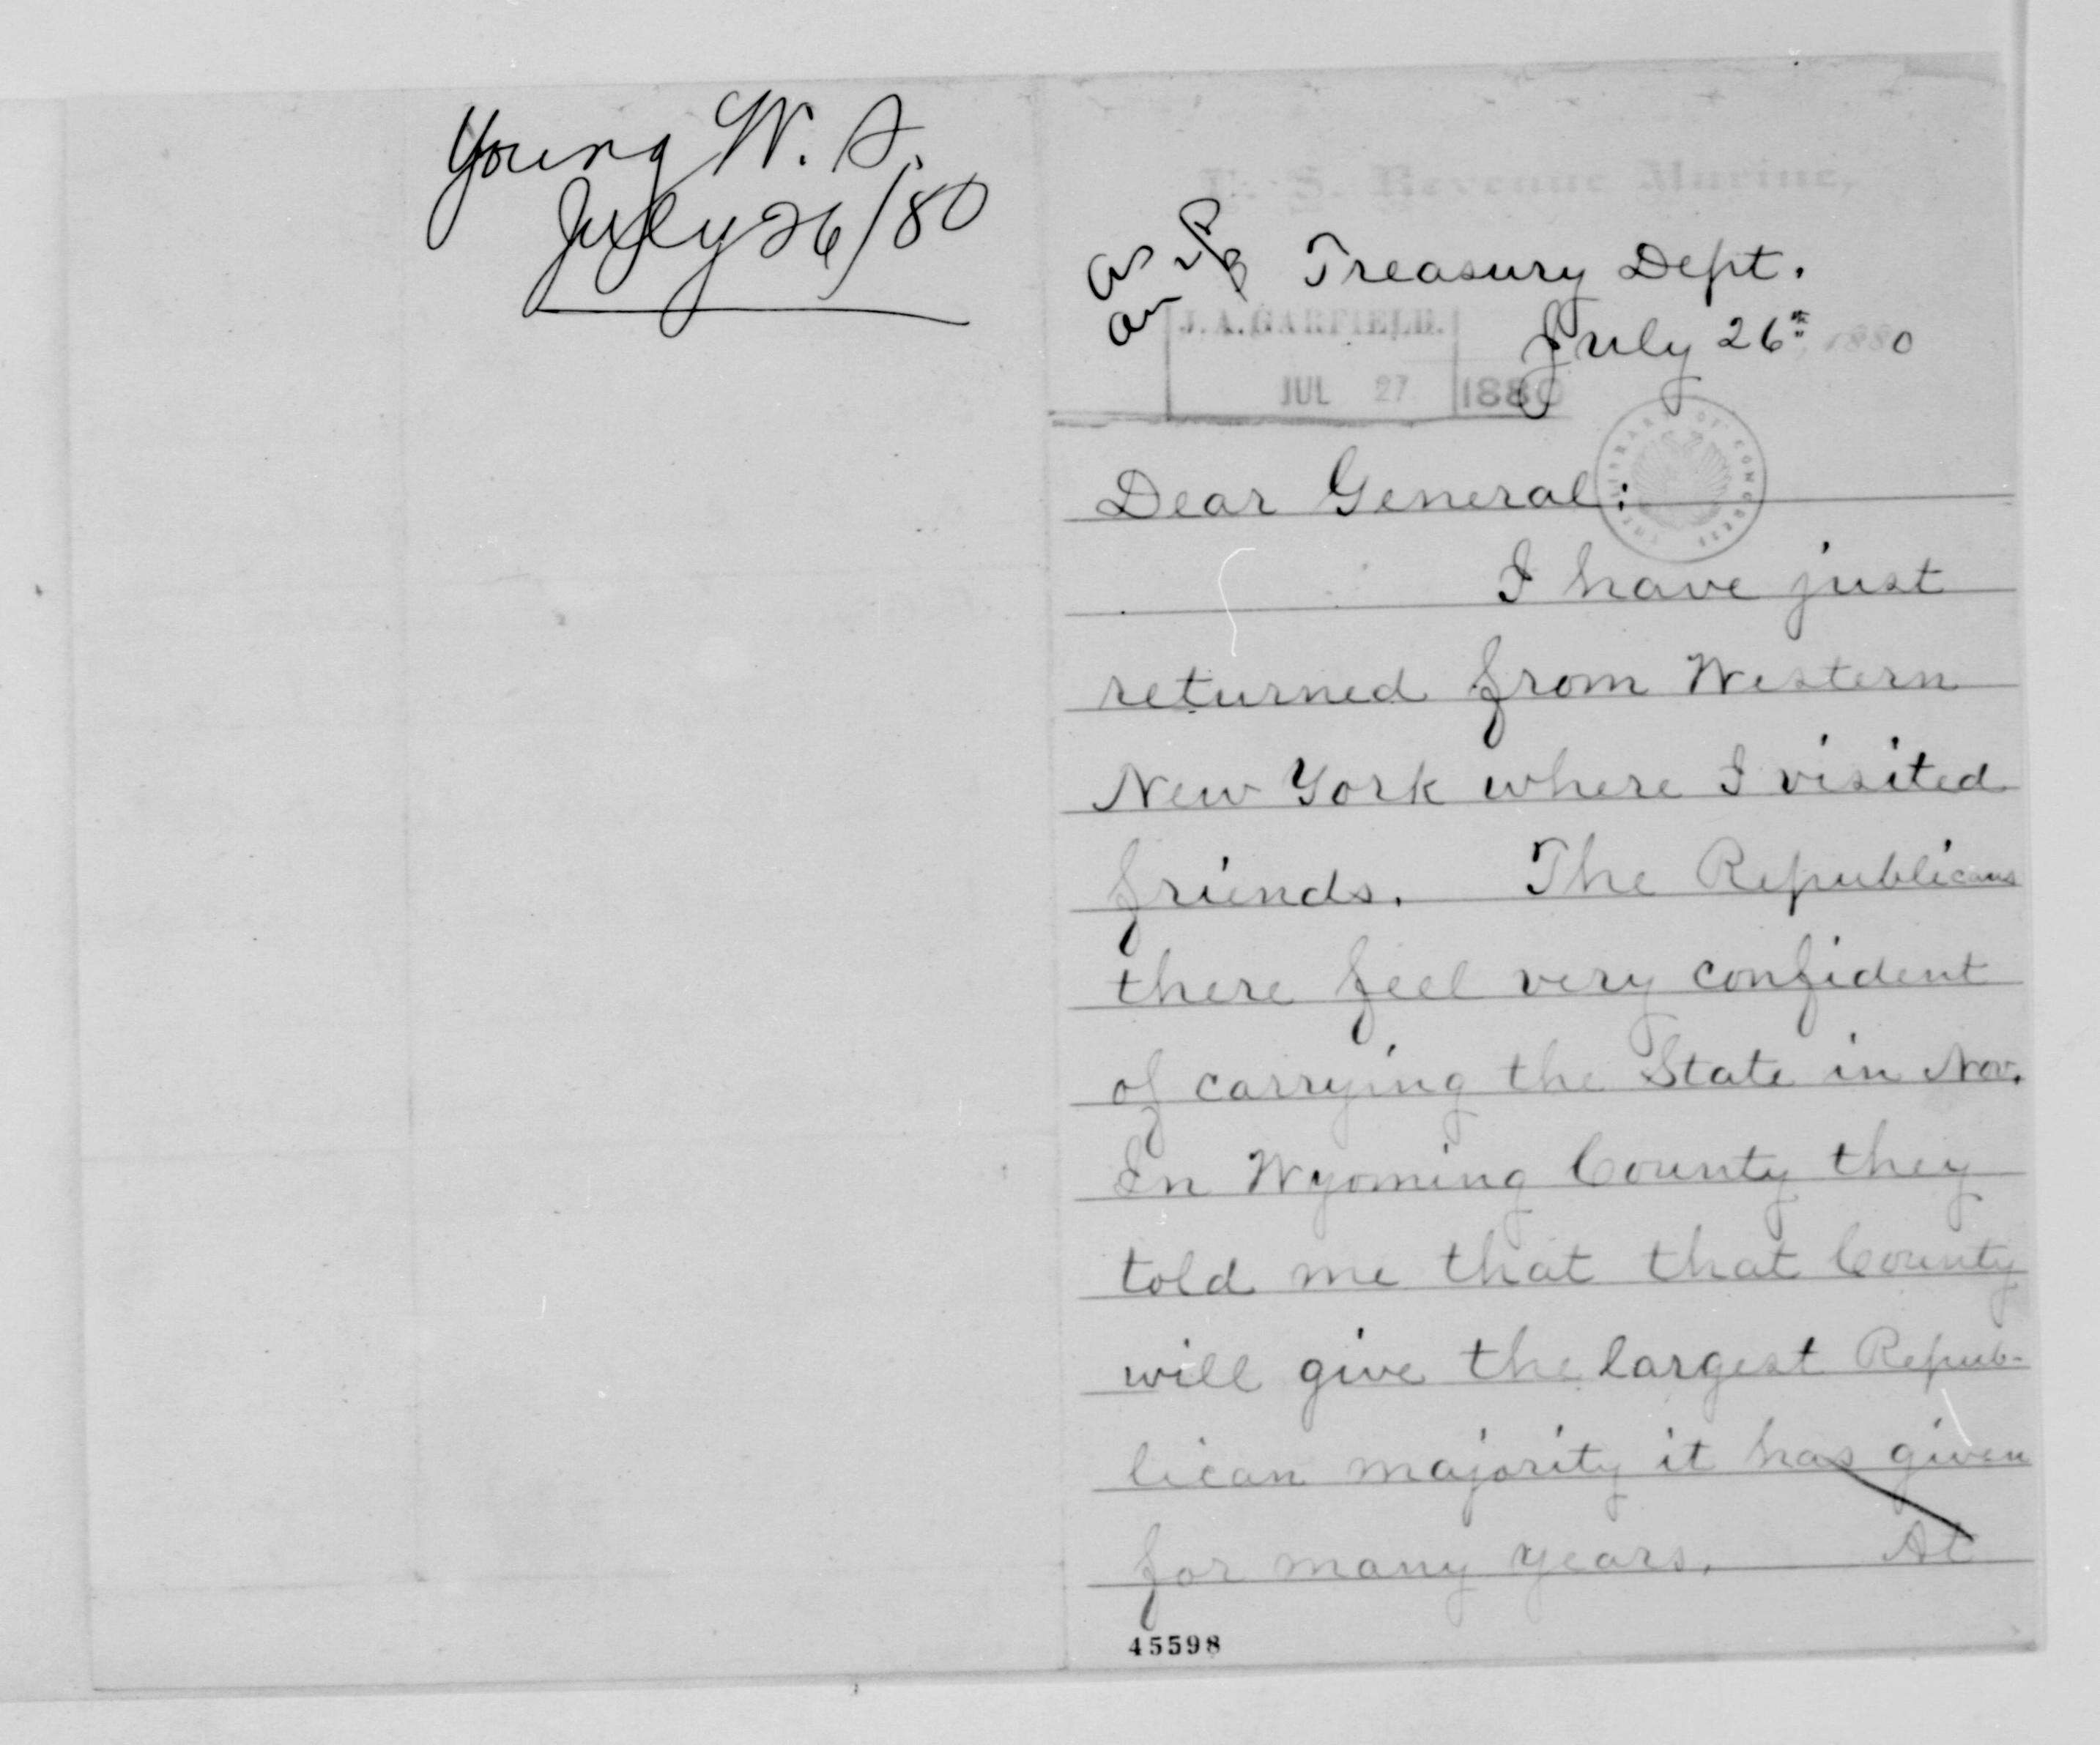 Young W. S.
July 26/80
U. S. Revenue Marine,
Treasury Dept.
July 26th, 1880
J. A. GARFIELD.
JUL 27 1880
THE LIBRARY OF CONGRESS
Dear General:
I have just
returned from Western
New York where I visited
friends. The Republicans
there feel very confident
of carrying the State in Nov.
In Wyoming County they
told me that that County
will give the largest Repub-
lican majority it has given
for many years. At
45598